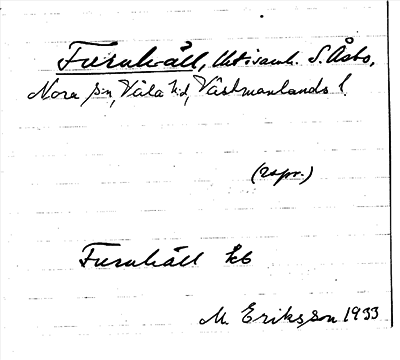 Furuhäll, Utivamh. S. Åsbo,
Nora sn, Våla hd, Västmanlands l.
(rspr.)
Furuhäll kb
M. Eriksson 1933